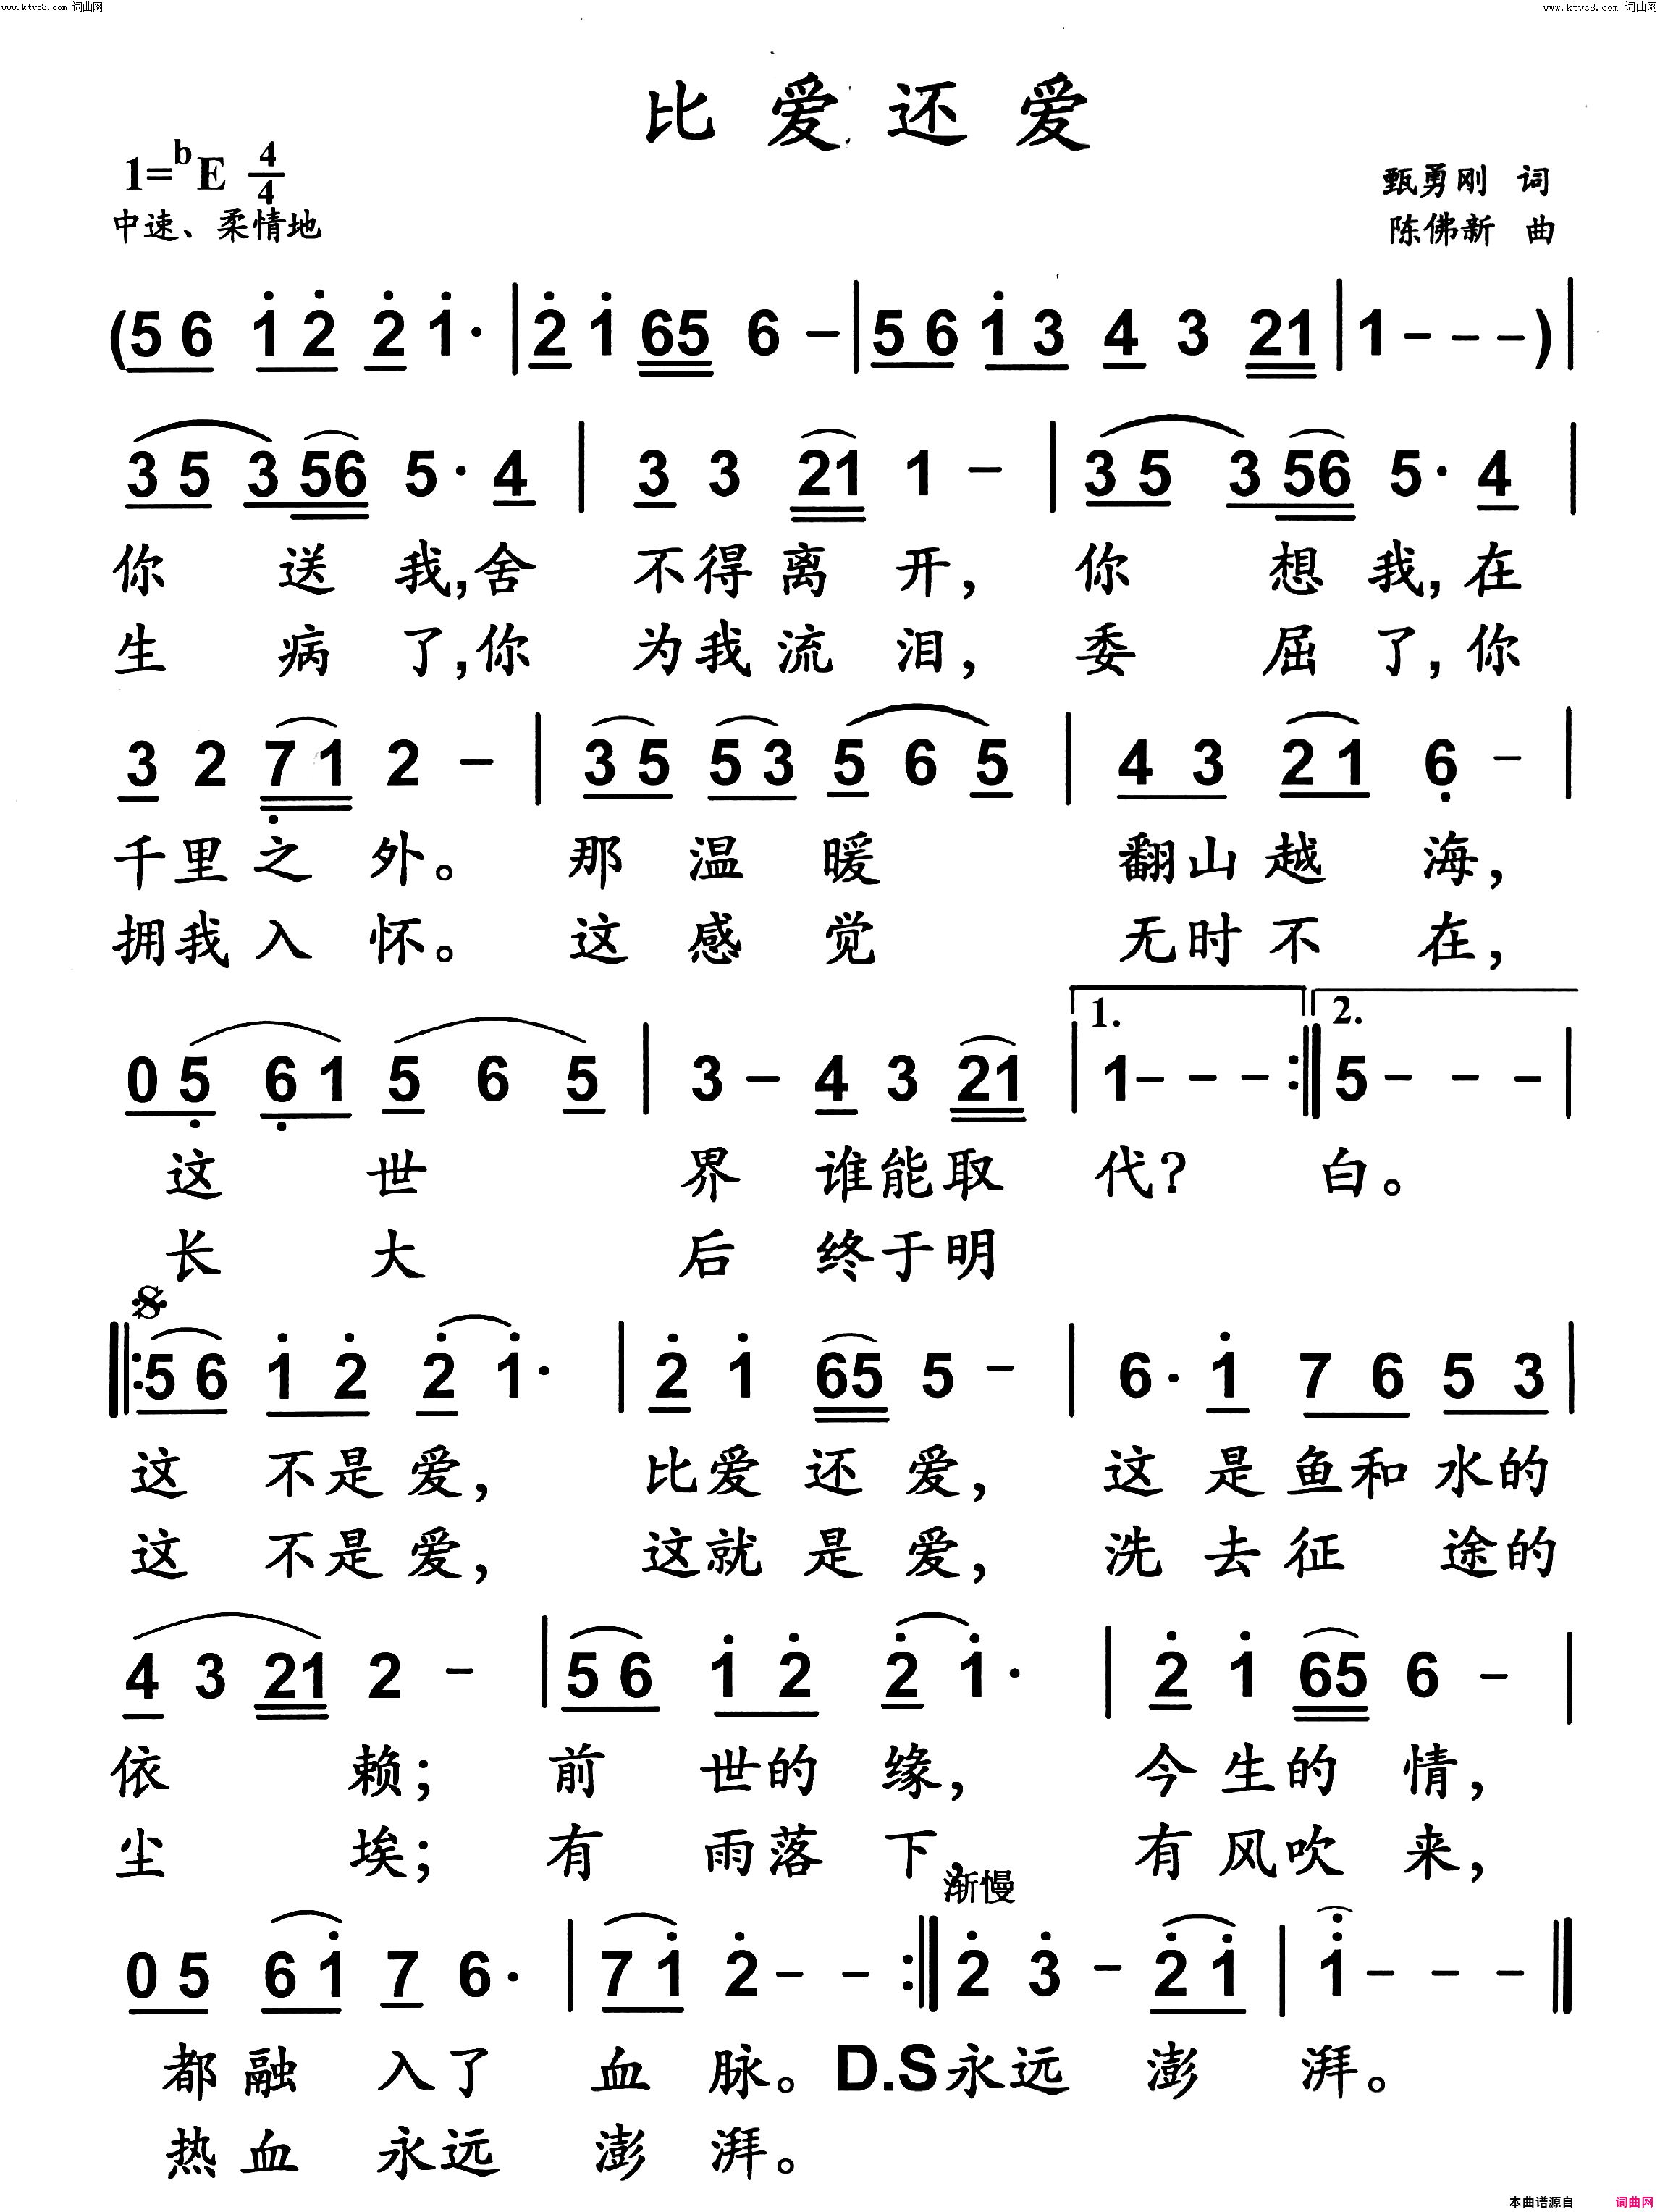 www.ktvc8.com 词曲网 www.ktvc8.com 词曲网
比爱还爱
1=bE 4/4
甄勇刚 词
中速、柔情地
陈佛新 曲
(5 6 1 2 2 1· | 2 1 65 6 - | 5 6 1 3 4 3 21 | 1 - - - ) |
3 5 3 56 5· 4 | 3 3 21 1 - | 3 5 3 56 5· 4 |
你 送 我,舍 不得离 开, 你 想 我,在
生 病 了,你 为我流 泪, 委 屈 了,你
3 2 7 1 2 - | 3 5 5 3 5 6 5 | 4 3 2 1 6 - |
千里之 外。 那 温 暖 翻山越 海,
拥我入 怀。 这 感 觉 无时不 在,
1. 2.
0 5 6 1 5 6 5 | 3 - 4 3 21 | 1 - - - :‖ 5 - - - |
这 世 界 谁能取 代? 白。
长 大 后 终于明
‖: 5 6 1 2 2 1· | 2 1 65 5 - | 6· 1 7 6 5 3 |
这 不是爱, 比爱还 爱, 这 是鱼和 水的
这 不是爱, 这就是 爱, 洗 去征 途的
4 3 21 2 - | 5 6 1 2 2 1· | 2 1 65 6 - |
依 赖; 前 世的 缘, 今生的 情,
尘 埃; 有 雨落 下, 有风吹 来,
渐慢
0 5 6 1 7 6· | 7 1 2 - - :‖ 2 3 - 2 1 | 1 - - - ‖
都融 入了 血 脉。D.S永远 澎 湃。
热血 永远 澎 湃。
本曲谱源自 词曲网